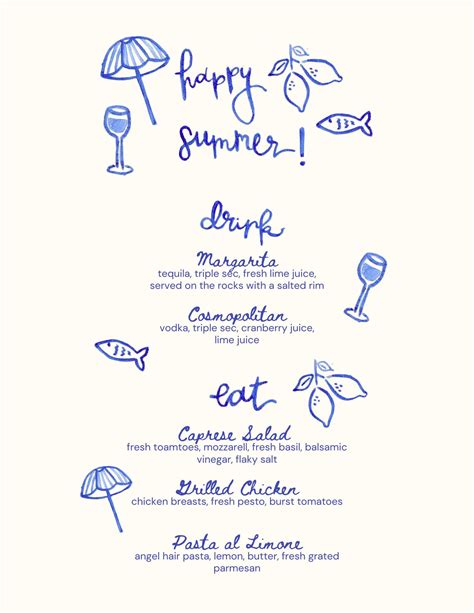 happy
summer!
drink
Margarita
tequila, triple sec, fresh lime juice,
served on the rocks with a salted rim
Cosmopolitan
vodka, triple sec, cranberry juice,
lime juice
eat
Caprese Salad
fresh toamtoes, mozzarell, fresh basil, balsamic
vinegar, flaky salt
Grilled Chicken
chicken breasts, fresh pesto, burst tomatoes
Pasta al Limone
angel hair pasta, lemon, butter, fresh grated
parmesan